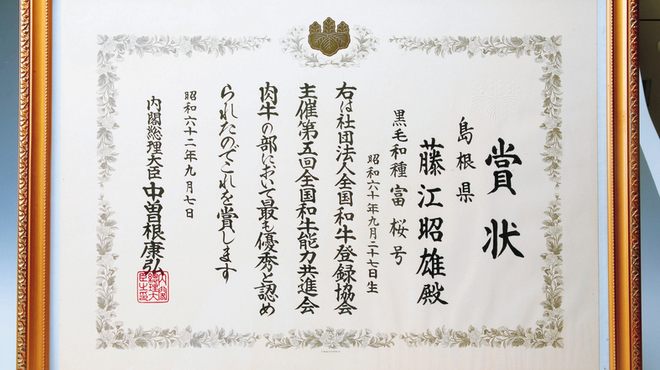 賞状
島根県
藤江昭雄殿
昭和六十年九月二十七日生
黒毛和種富桜号
右は社団法人全国和牛登録協会
主催第五回全国和牛能力共進会
肉牛の部において最も優秀と認め
られたのでこれを賞します
昭和六十二年九月七日
内閣総理大臣中曽根康弘